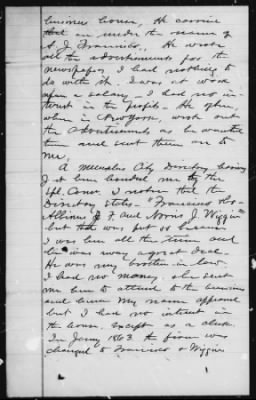 business house, He carried
that on under the name of
A. J. Francisco., He wrote
all the advertisements for the
newspaper, I had nothing to
do with it. I was at work
upon a salary - I had no in-
terest in the profits. He often,
when in New York, wrote out
the advertisements as he wanted
them and sent them on to
me,
A Memphis City Directory having
been handed me by the
Spl. Comr. I notice that the
Directory states - "Francisco
Albinus J. F. and Norris J. Wiggin"
but that was put so because
I was here all the time and
he was away a great deal -
He was my brother in law -
I had no money, he sent
me here to attend to the business
and hence my name appeared
but I had no interest in
the house, except as a clerk.
In Jany 1863 the firm was
changed to Francisco & Wiggin